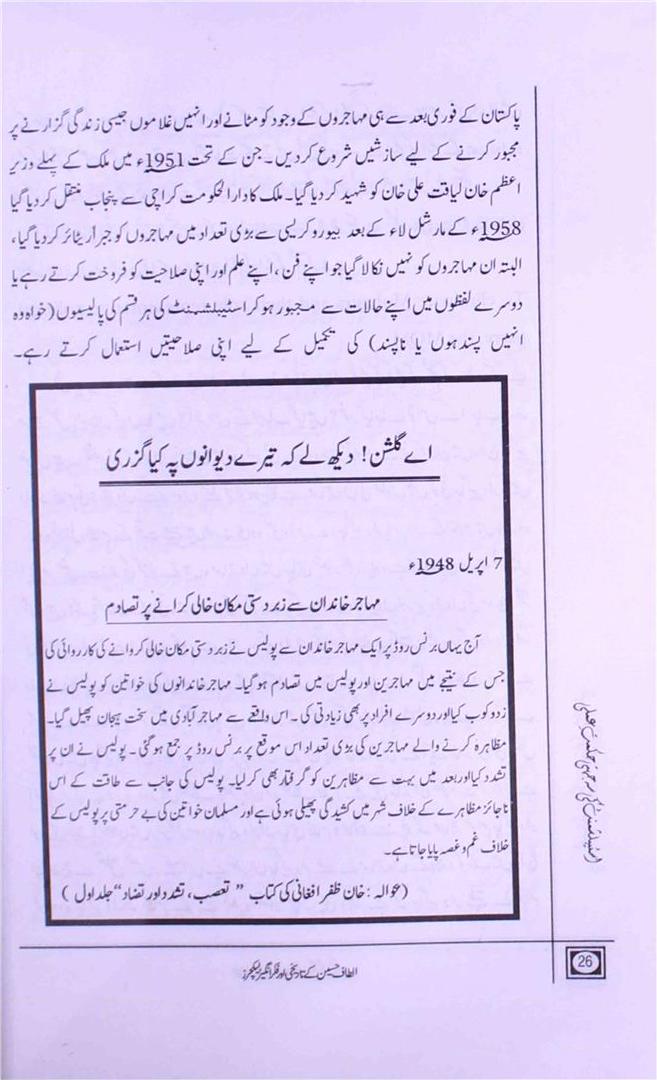 پاکستان کے فوری بعد سے ہی مہاجروں کے وجود کو مٹانے اور انہیں غلاموں جیسی زندگی گزارنے پر
مجبور کرنے کے لیے سازشیں شروع کر دیں۔ جن کے تحت 1951ء میں ملک کے پہلے وزیر
اعظم خان لیاقت علی خان کو شہید کر دیا گیا۔ ملک کا دارالحکومت کراچی سے پنجاب منتقل کر دیا گیا
1958ء کے مارشل لاء کے بعد بیوروکریسی سے بڑی تعداد میں مہاجروں کو جبراً ریٹائر کر دیا گیا،
البتہ ان مہاجروں کو نہیں نکالا گیا جو اپنے فن، اپنے علم اور اپنی صلاحیت کو فروخت کرتے رہے یا
دوسرے لفظوں میں اپنے حالات سے مجبور ہو کر اسٹیبلشمنٹ کی ہر قسم کی پالیسیوں (خواہ وہ
انہیں پسند ہوں یا ناپسند) کی تکمیل کے لیے اپنی صلاحیتیں استعمال کرتے رہے۔
اے گلشن! دیکھ لے کہ تیرے دیوانوں پہ کیا گزری
7 اپریل 1948ء
مہاجر خاندان سے زبردستی مکان خالی کرانے پر تصادم
آج یہاں برنس روڈ پر ایک مہاجر خاندان سے پولیس نے زبردستی مکان خالی کروانے کی کارروائی کی
جس کے نتیجے میں مہاجرین اور پولیس میں تصادم ہو گیا۔ مہاجر خاندانوں کی خواتین کو پولیس نے
زدوکوب کیا اور دوسرے افراد پر بھی زیادتی کی۔ اس واقعے سے مہاجر آبادی میں سخت ہیجان پھیل گیا۔
مظاہرہ کرنے والے مہاجرین کی بڑی تعداد اس موقع پر برنس روڈ پر جمع ہو گئی۔ پولیس نے ان پر
تشدد کیا اور بعد میں بہت سے مظاہرین کو گرفتار بھی کر لیا۔ پولیس کی جانب سے طاقت کے اس
ناجائز مظاہرے کے خلاف شہر میں کشیدگی پھیلی ہوئی ہے اور مسلمان خواتین کی بے حرمتی پر پولیس کے
خلاف غم و غصہ پایا جاتا ہے۔
(حوالہ: خان ظفر افغانی کی کتاب "تعصب، تشدد اور تضاد" جلد اول)
اسٹیبلشمنٹ کی سہ جہتی حکمت عملی
26
الطاف حسین کے تاریخی اور فکر انگیز لیکچرز